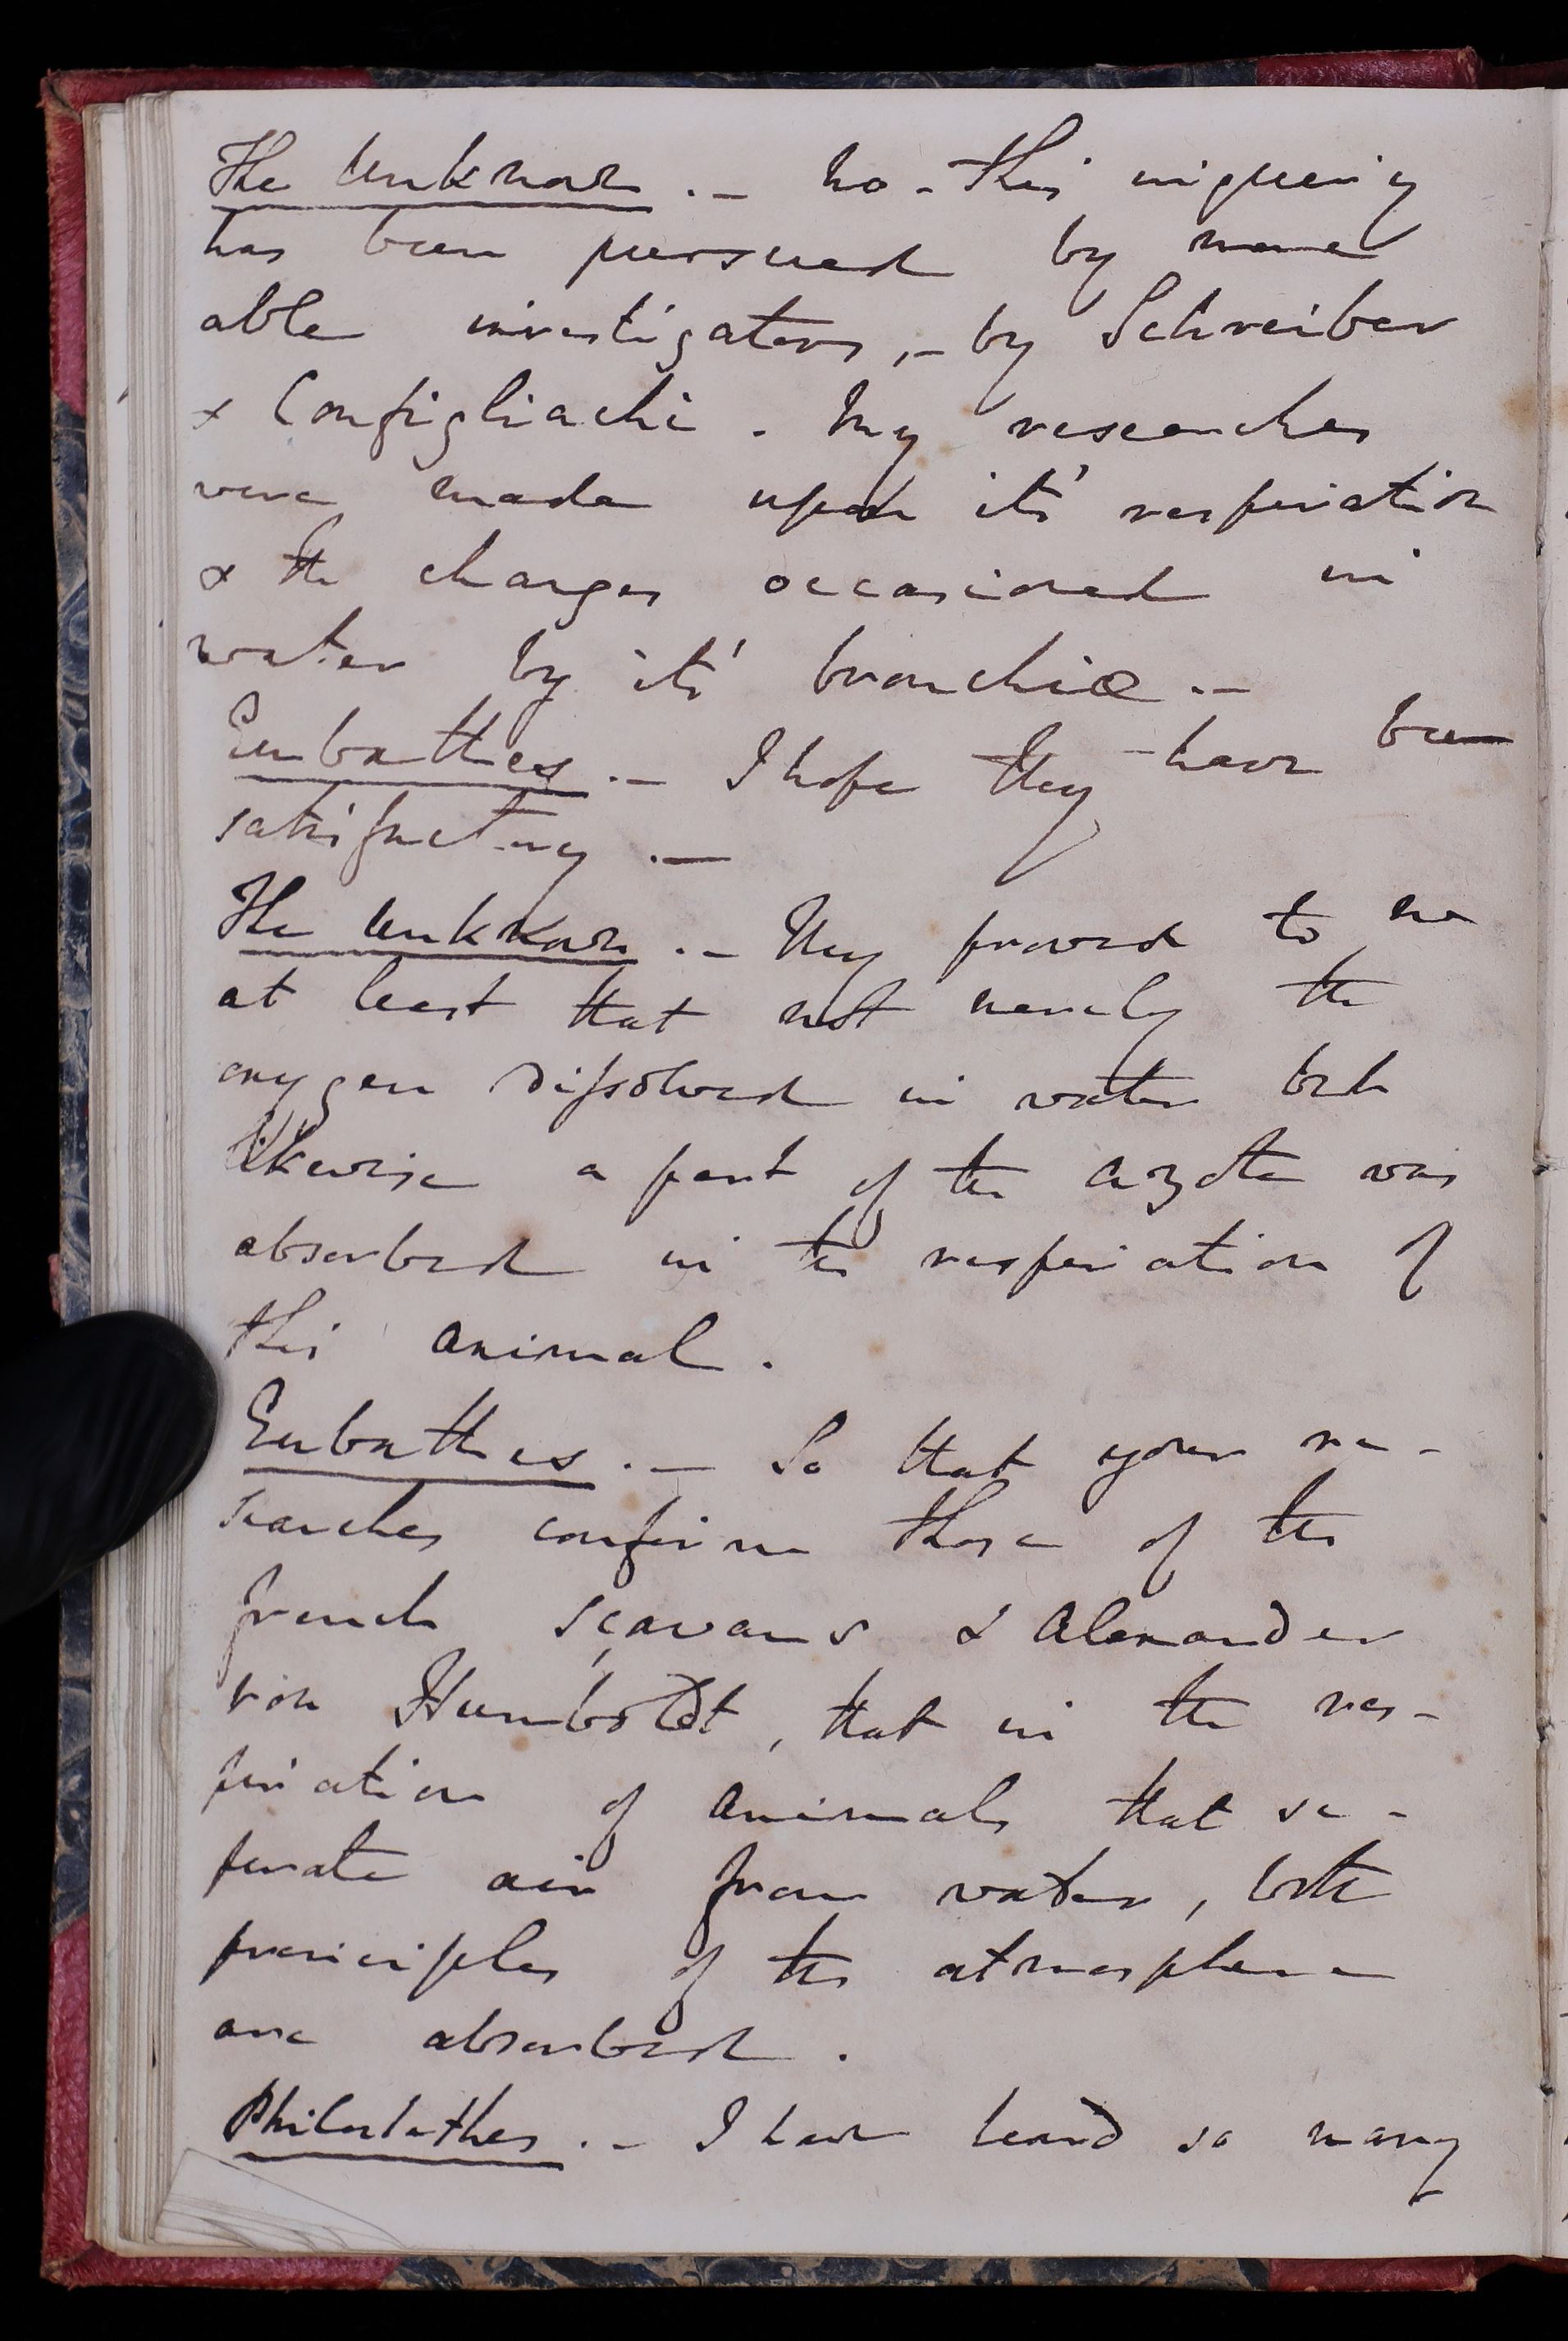 The Unknown .— No – this inquiry
has been pursued by more
able investigators, – by Schreiber
& Configliachi . My researches
were made upon it's respiration
& the changes occasioned in
water by it's bronchiæ .—
Eubathes .— I hope they have been
satisfactory .—
The Unknown .— They proved to me
at least that not merely the
oxygen dissolved in water but
likewise a part of the azote was
absorbed in the respiration of
this animal .
Eubathes .— So that your re-
searches confirm those of the
french sçavans & Alexander
von Humboldt, that in the res-
piration of animals that se-
perate air from water, both
principles of the atmosphere
are absorbed .
Philalethes .— I have heard so many